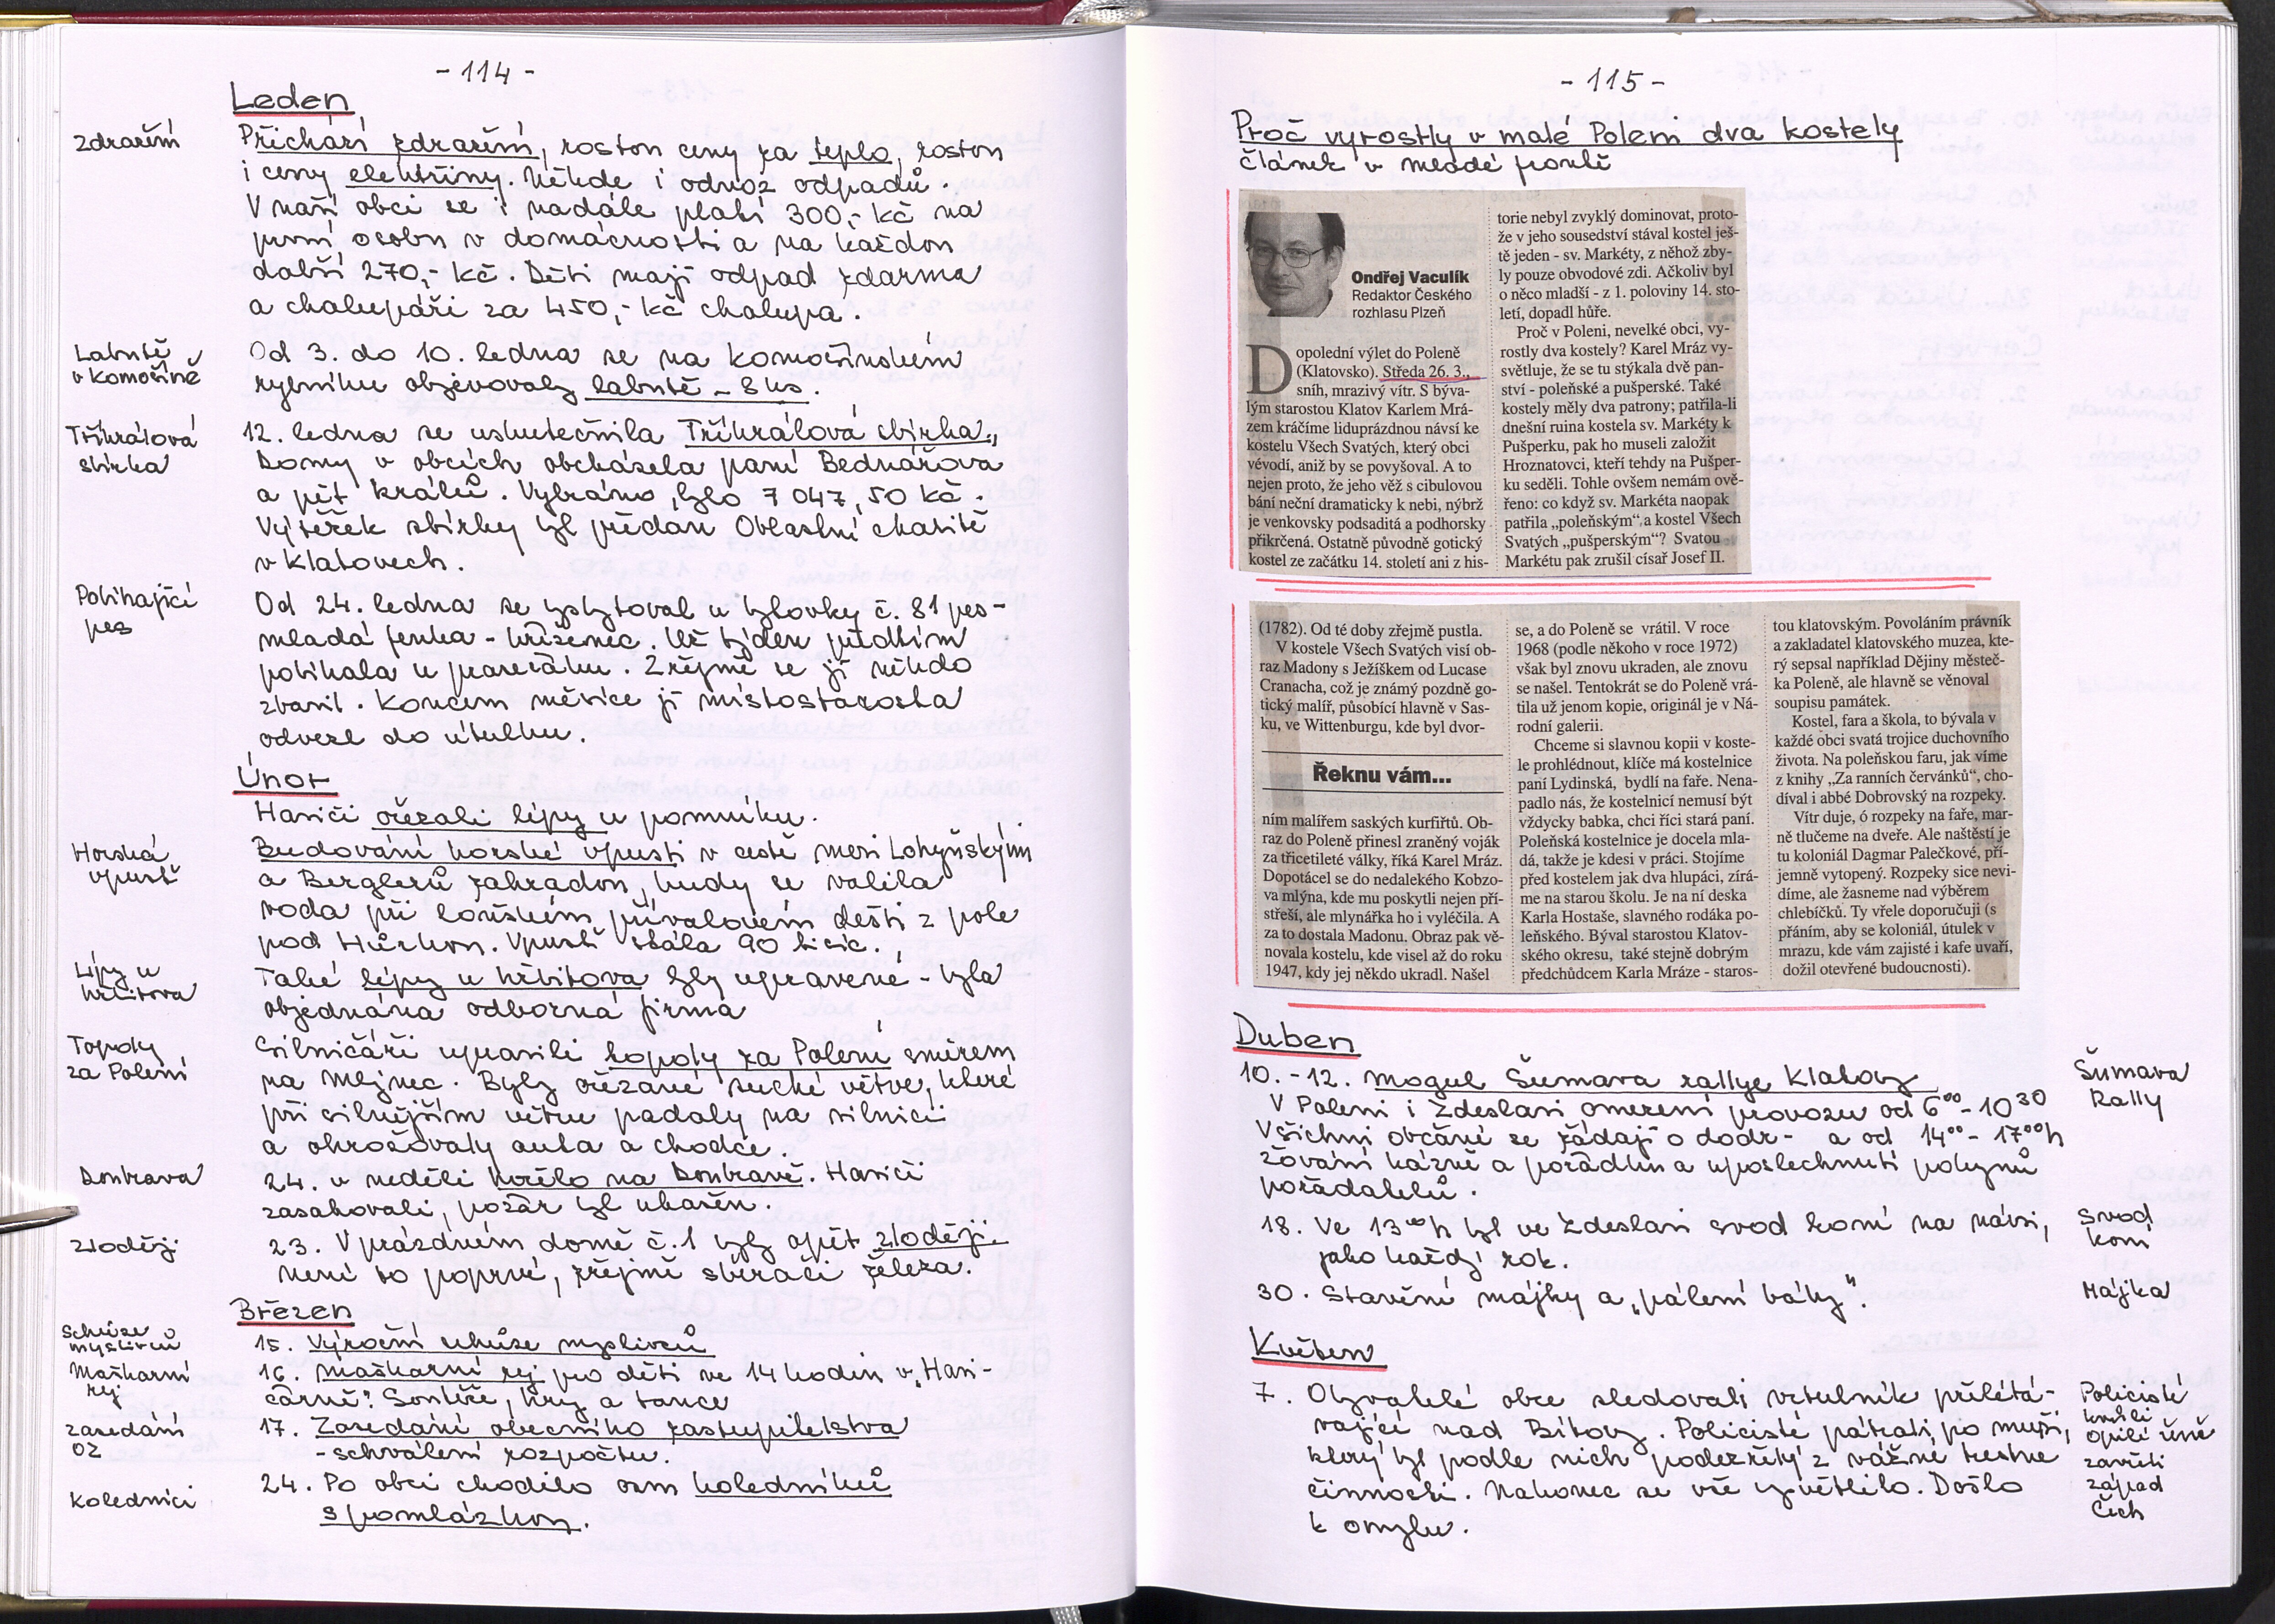 - 114 -
Leden
zdražení
Přichází zdražení, rostou ceny za teplo, rostou
i ceny elektřiny. Někde i odvoz odpadů.
V naší obci se i nadále platí 300,- Kč na
první osobu v domácnosti a na každou
další 270,- Kč. Děti mají odpad zdarma
a chalupáři za 450,- Kč chalupa.
Labutě
v Komošíně
Od 3. do 10. ledna se na komošínském
rybníku objevovaly labutě - 8 ks.
Tříkrálová
sbírka
12. ledna se uskutečnila Tříkrálová sbírka.
Domy v obcích obcházela paní Bednářova
a pět králů. Vybráno bylo 7 047,50 Kč.
Výtěžek sbírky byl předán Oblastní charitě
v Klatovech.
Pobíhající
pes
Od 24. ledna se vyskytoval u bytovky č. 81 pes -
mladá fenka - kříženec. Už týden předtím
pobíhala u paneláku. Zřejmě se jí někdo
zbavil. Koncem měsíce ji místostarosta
odvezl do útulku.
Únor
Hasiči ořezali lípy u pomníku.
Horská
vpusť
Budování horské vpusti v cestě mezi Lohynským
a Berglerů zahradou, kudy se valila
voda při loňském přívalovém dešti z pole
pod Hůrkou. Vpusť stála 90 tisíc.
Lípy u
hřbitova
Také lípy u hřbitova byly upravené - byla
objednána odborná firma
Topoly
za Polení
Silničáři upravili topoly za Polení směrem
na Mlýnec. Byly ořezané suché větve, které
při silnějším větru padaly na silnici
a ohrožovaly auta a chodce.
Doubrava
24. v neděli hořelo na Doubravě. Hasiči
zasahovali, požár byl uhašen.
zloději
23. V prázdném domě č. 1 byly opět zloději.
Není to poprvé, zřejmě sběrači železa.
Březen
Schůze
myslivců
15. Výroční schůze myslivců
Maškarní
rej
16. Maškarní rej pro děti ve 14 hodin v „Hasi-
čárně". Soutěže, hry a tance
zasedání
OZ
17. Zasedání obecního zastupitelstva
- schválení rozpočtu.
Koledníci
24. Po obci chodilo osm koledníků
s pomlázkou.
- 115 -
Proč vyrostly v malé Poleni dva kostely
článek v Mladé frontě
Ondřej Vaculík
Redaktor Českého
rozhlasu Plzeň
Dopolední výlet do Poleně
(Klatovsko). Středa 26. 3.,
sníh, mrazivý vítr. S býva-
lým starostou Klatov Karlem Mrá-
zem kráčíme liduprázdnou návsí ke
kostelu Všech Svatých, který obci
vévodí, aniž by se povyšoval. A to
nejen proto, že jeho věž s cibulovou
bání neční dramaticky k nebi, nýbrž
je venkovsky podsaditá a podhorsky
přikrčená. Ostatně původně gotický
kostel ze začátku 14. století ani z his-
torie nebyl zvyklý dominovat, proto-
že v jeho sousedství stával kostel ješ-
tě jeden - sv. Markéty, z něhož zby-
ly pouze obvodové zdi. Ačkoliv byl
o něco mladší - z 1. poloviny 14. sto-
letí, dopadl hůře.
Proč v Poleni, nevelké obci, vy-
rostly dva kostely? Karel Mráz vy-
světluje, že se tu stýkala dvě pan-
ství - poleňské a pušperské. Také
kostely měly dva patrony; patřila-li
dnešní ruina kostela sv. Markéty k
Pušperku, pak ho museli založit
Hroznatovci, kteří tehdy na Pušper-
ku seděli. Tohle ovšem nemám ově-
řeno: co když sv. Markéta naopak
patřila „poleňským“ a kostel Všech
Svatých „pušperským“? Svatou
Markétu pak zrušil císař Josef II.
(1782). Od té doby zřejmě pustla.
V kostele Všech Svatých visí ob-
raz Madony s Ježíškem od Lucase
Cranacha, což je známý pozdně go-
tický malíř, působící hlavně v Sas-
ku, ve Wittenburgu, kde byl dvor-
Řeknu vám...
ním malířem saských kurfiřtů. Ob-
raz do Poleně přinesl zraněný voják
za třicetileté války, říká Karel Mráz.
Dopotácel se do nedalekého Kobzo-
va mlýna, kde mu poskytli nejen pří-
střeší, ale mlynářka ho i vyléčila. A
za to dostala Madonu. Obraz pak vě-
novala kostelu, kde visel až do roku
1947, kdy jej někdo ukradl. Našel
se, a do Poleně se vrátil. V roce
1968 (podle někoho v roce 1972)
však byl znovu ukraden, ale znovu
se našel. Tentokrát se do Poleně vrá-
tila už jenom kopie, originál je v Ná-
rodní galerii.
Chceme si slavnou kopii v koste-
le prohlédnout, klíče má kostelnice
paní Lydinská, bydlí na faře. Nena-
padlo nás, že kostelnicí nemusí být
vždycky babka, chci říci stará paní.
Poleňská kostelnice je docela mla-
dá, takže je kdesi v práci. Stojíme
před kostelem jak dva hlupáci, zírá-
me na starou školu. Je na ní deska
Karla Hostaše, slavného rodáka po-
leňského. Býval starostou Klatov-
ského okresu, také stejně dobrým
předchůdcem Karla Mráze - staros-
tou klatovským. Povoláním právník
a zakladatel klatovského muzea, kte-
rý sepsal například Dějiny městeč-
ka Poleně, ale hlavně se věnoval
soupisu památek.
Kostel, fara a škola, to bývala v
každé obci svatá trojice duchovního
života. Na poleňskou faru, jak víme
z knihy „Za ranních červánků“, cho-
díval i abbé Dobrovský na rozpeky.
Vítr duje, ó rozpeky na faře, mar-
ně tlučeme na dveře. Ale naštěstí je
tu koloniál Dagmar Palečkové, pří-
jemně vytopený. Rozpeky sice nevi-
díme, ale žasneme nad výběrem
chlebíčků. Ty vřele doporučuji (s
přáním, aby se koloniál, útulek v
mrazu, kde vám zajisté i kafe uvaří,
dožil otevřené budoucnosti).
Duben
10. - 12. Mogul Šumava rallye Klatovy
Šumava
Rally
V Poleni i Zdeslavi omezení provozu od 6⁰⁰ - 10³⁰
Všichni občané se žádají o dodr- a od 14⁰⁰ - 17⁰⁰ h
žování kázně a pořádku a uposlechnutí pokynů
pořadatelů.
18. Ve 13⁰⁰ h byl ve Zdeslavi svod koní na návsi,
jako každý rok.
Svod
koní
30. Stavění májky a „pálení báby".
Májka
Květen
7. Obyvatelé obce sledovali vrtulník přilétá-
vající nad Bítovy. Policisté pátrali po muži,
který byl podle nich podezřelý z vážné trestné
činnosti. Nakonec se vše vysvětlilo. Došlo
k omylu.
Policisté
kvůli
opilé ženě
zavřeli
západ
Čech